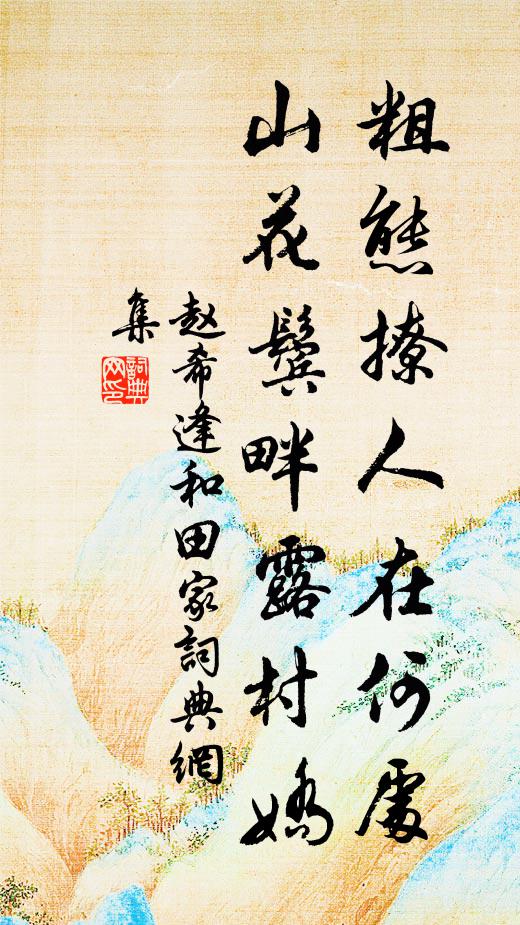 粗態撩人在何處
山花鬢畔露村嬌
赵希逢和田家詞典網
集
詞典
网印